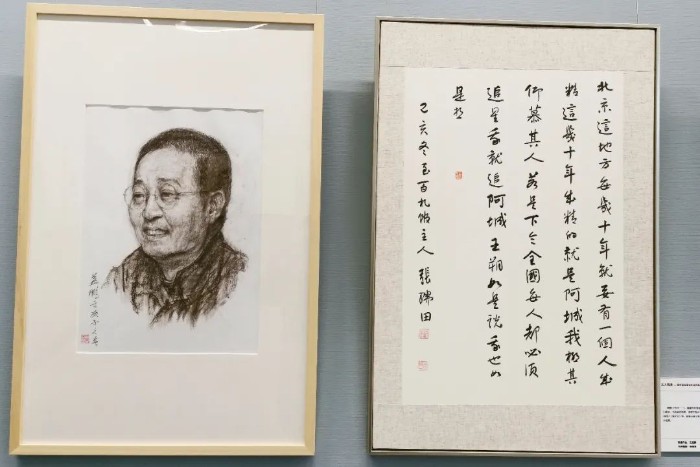 北京這地方每幾十年就要有一個人成
精這幾十年成精的就是阿城我極其
仰慕其人若是下令全國每人都必須
追星我就追阿城王朔如是說我也如
是想
己亥冬至百札館主人張瑞田